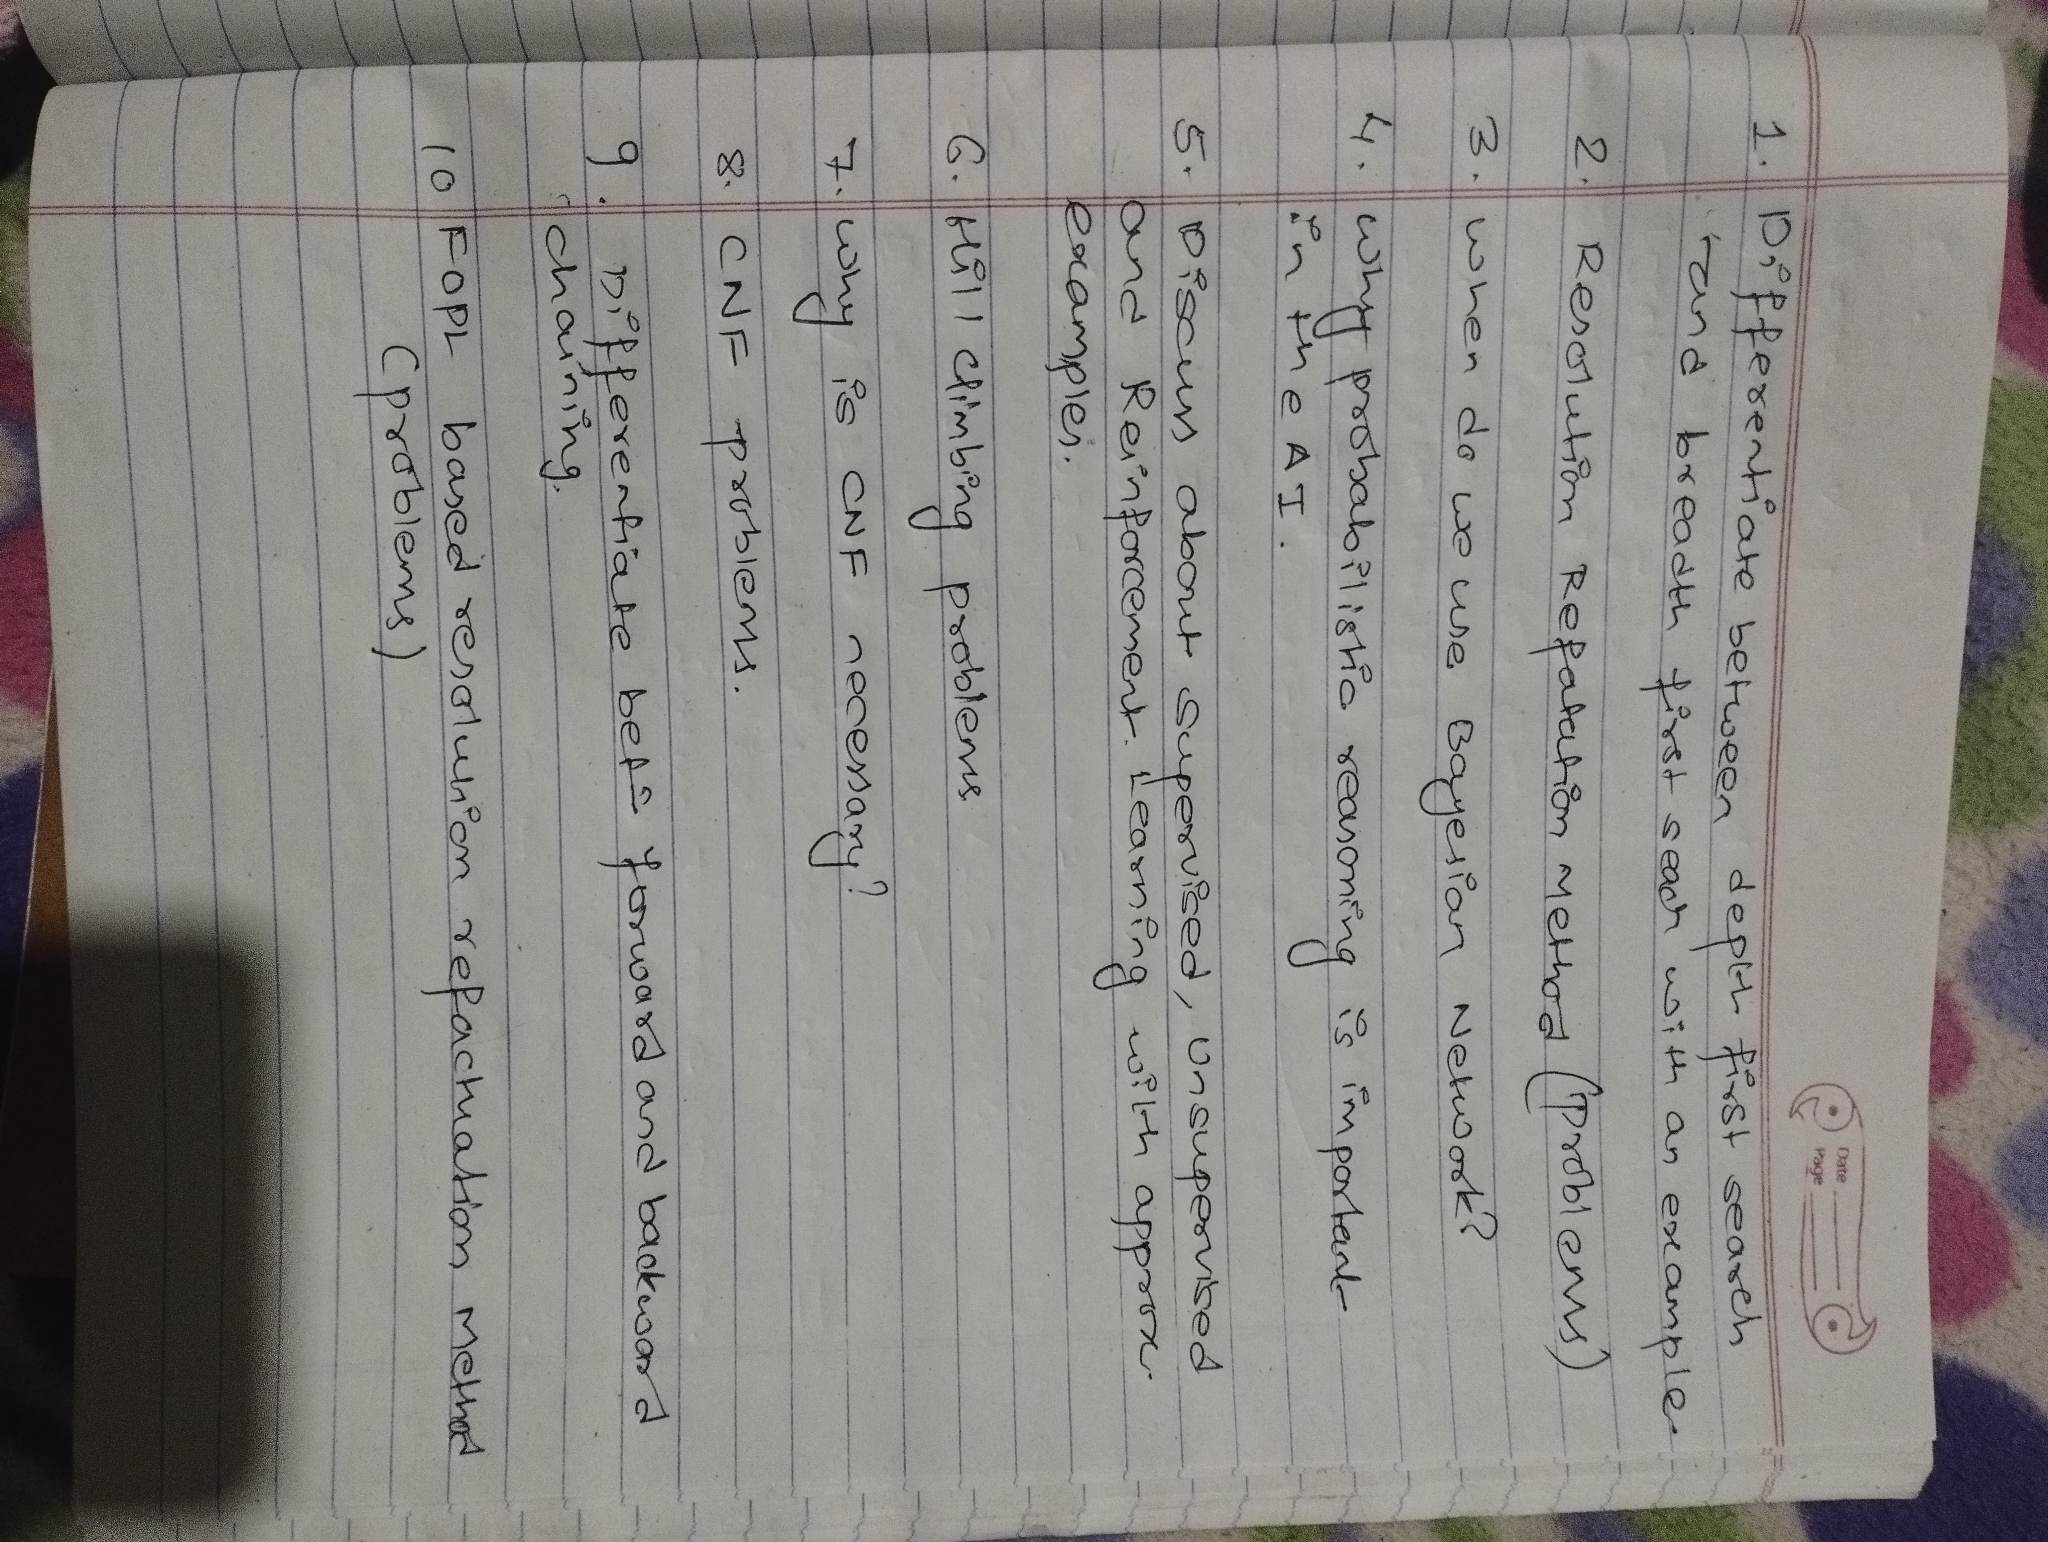 Date
Page
1. Differentiate between depth first search
and breadth first seach with an example.
2. Resolution Refatation Method (Problems)
3. when do we use Bayesian Network?
4. why probabilistic reasoning is important
in the AI.
5. Discuss about supervised, Unsupervised
and Reinforcement. Learning with approx.
examples.
6. Hill Climbing problems
7. why is CNF necessary?
8. CNF problems.
9. Differentiate betn forward and backward
chaining.
10 FOPL based resolution refactuation Method
(problems)